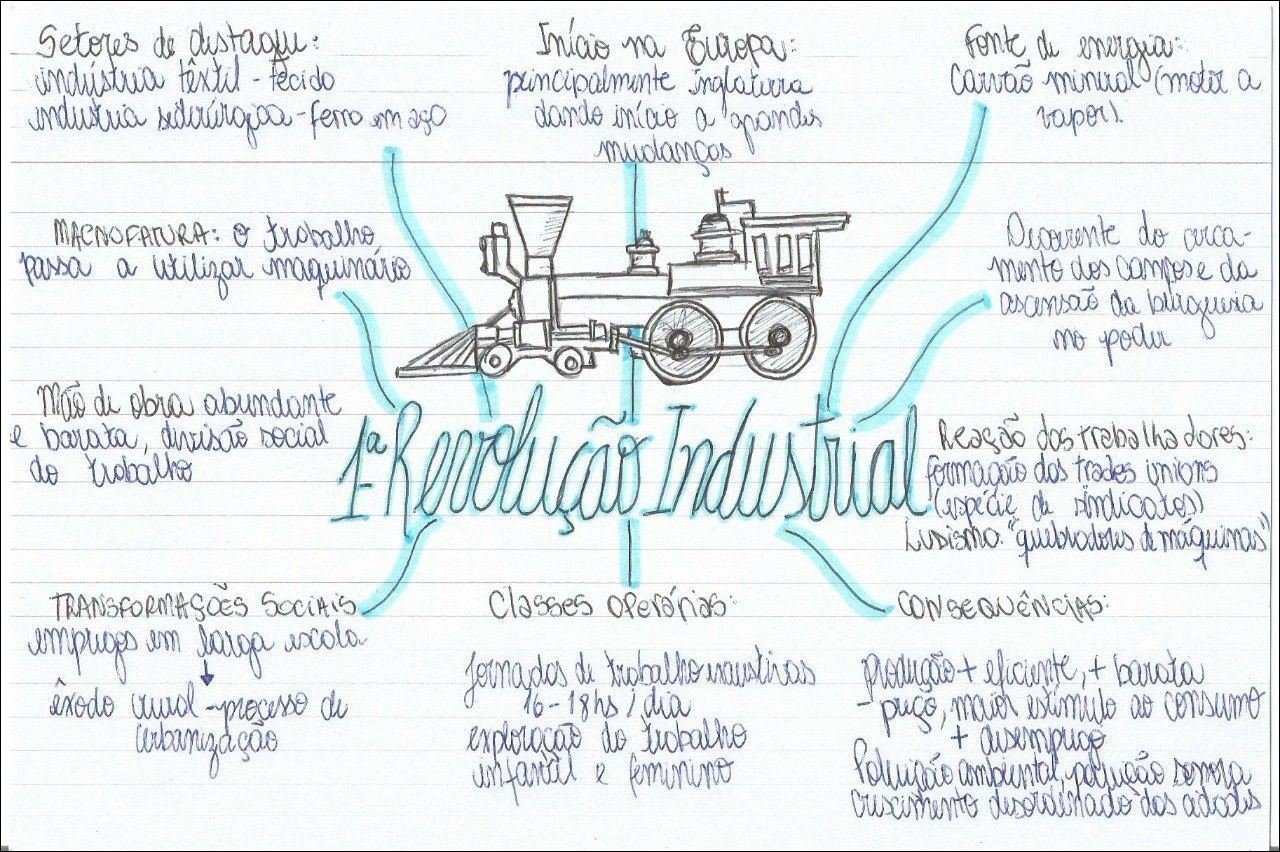 Setores de destaque:
indústria têxtil - tecido
industria siderúrgica - ferro em aço
Início na Europa:
principalmente inglaterra
dando início a grandes
mudanças
Fonte de energia:
Carvão mineral (motor a
vapor).
MAGNOFATURA: o trabalho
passa a utilizar maquinário
Decorrente do cerca-
mento dos campos e da
ascensão da burguesia
no poder
Mão de obra abundante
e barata, divisão social
do trabalho
1ª Revolução Industrial
Reação dos trabalhadores:
formação das trades unions
(espécie de sindicatos)
Ludismo "quebradores de máquinas"
TRANSFORMAÇÕES SOCIAIS
empregos em larga escala
êxodo rural - processo de
urbanização
Classes operárias:
jornadas de trabalho exaustivas
16 - 18hs / dia
exploração do trabalho
infantil e feminino
CONSEQUÊNCIAS:
produção + eficiente, + barata
- preço, maior estímulo ao consumo
+ desemprego
Poluição ambiental, poluição sonora
crescimento desordenado das cidades